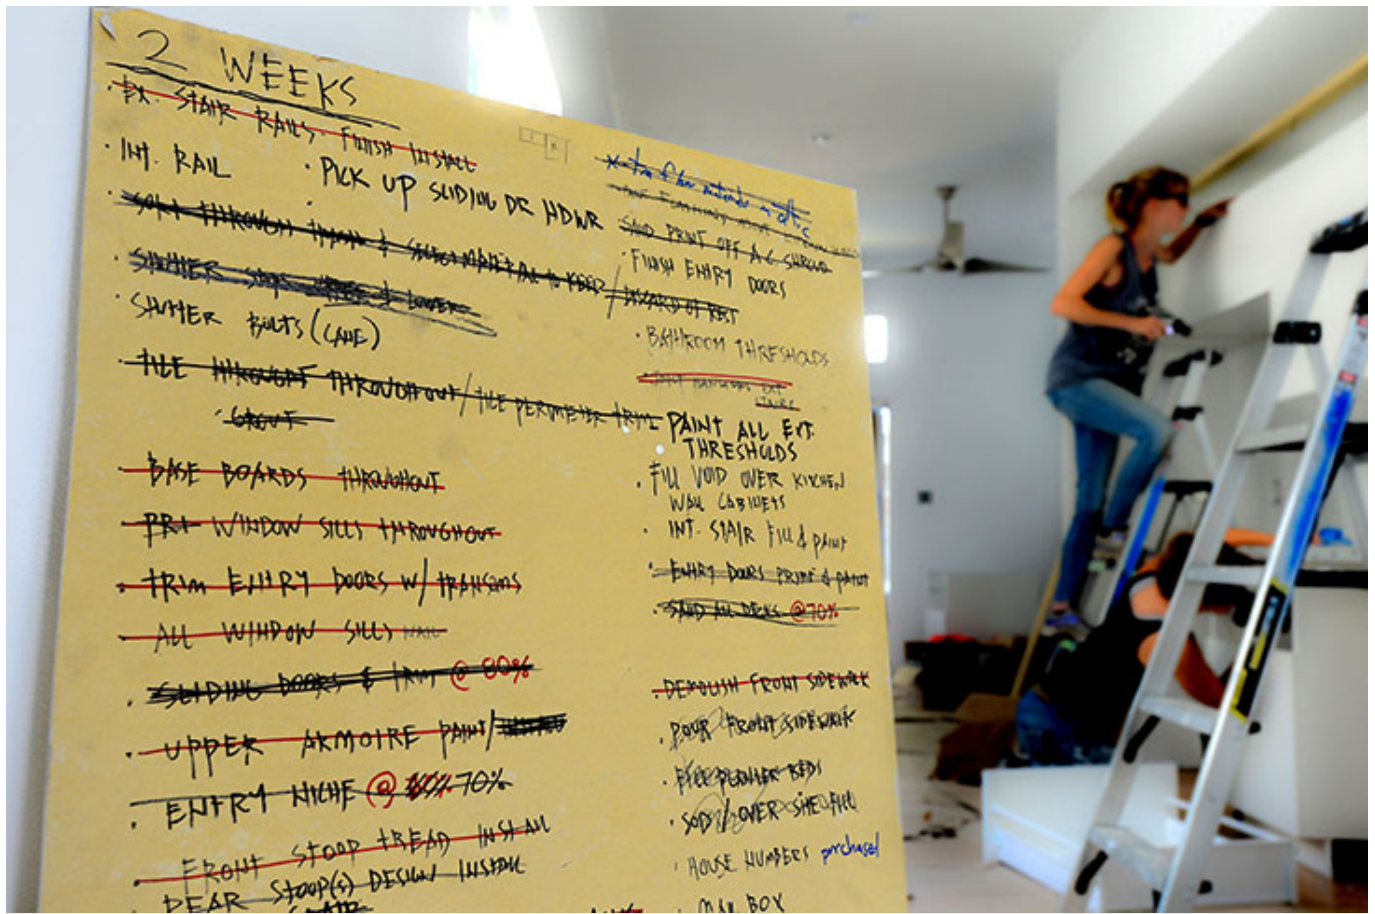 2 WEEKS
· EX. STAIR RAILS· FINISH INSTALL
· INT. RAIL
· PICK UP SLIDING DR HDWR
SORT THROUGH & SELECT MATERIAL TO KEEP / DISCARD OF REST
SHUTTER STOPS & LOWER
· SHUTTER BOLTS (CANE)
· TILE THROUGHOUT / TILE PERIMETER TRIM
· GROUT
· BASE BOARDS THROUGHOUT
· WINDOW SILLS THROUGHOUT
· TRIM ENTRY DOORS W/ TRANSOMS
· ALL WINDOW SILLS
· SLIDING DOORS & TRIM @ 80%
· UPPER ARMOIRE PAINT/
· ENTRY NICHE @ 70%
· FRONT STOOP TREAD INSTALL
REAR STOOP(S) DESIGN INSTALL
STAIR
SAND PRINT OFF A.C. SHROUD
· FINISH ENTRY DOORS
· BATHROOM THRESHOLDS
EXT
STAIRS
PAINT ALL EXT.
THRESHOLDS
· FILL VOID OVER KITCHEN
WALL CABINETS
· INT. STAIR FILL & PAINT
· ENTRY DOORS PRIME & PAINT
· SAND ALL DECKS @70%
· DEMOLISH FRONT SIDEWALK
· POUR FRONT SIDEWALK
· FILL PLANTER BEDS
· SOD / OVER SITE FILL
· HOUSE NUMBERS purchased
· MAIL BOX